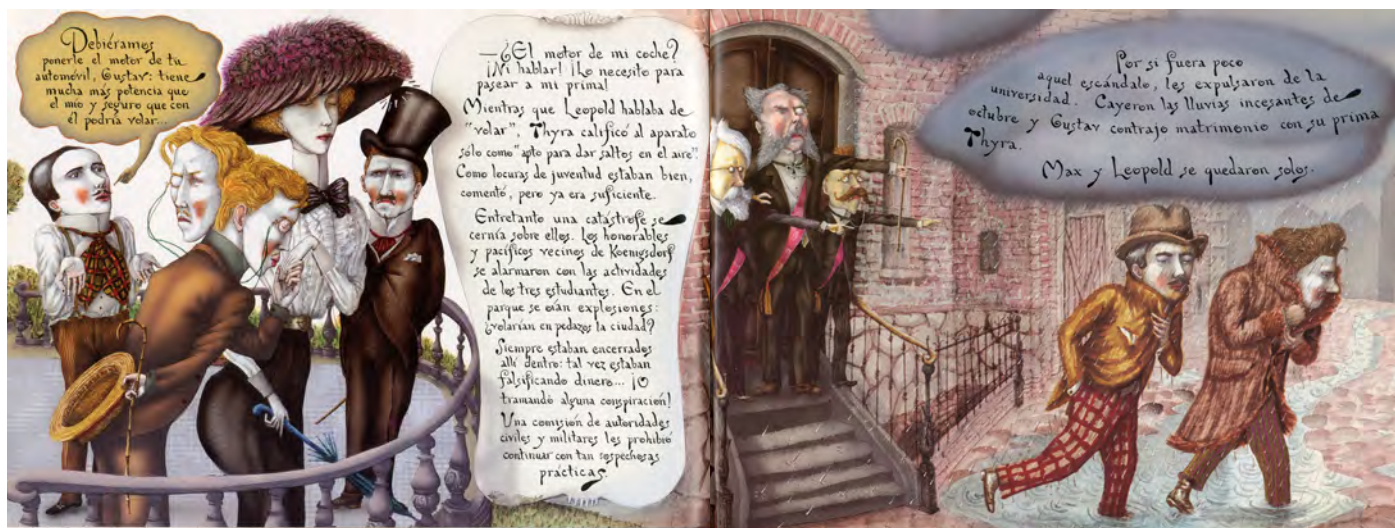 Debiéramos
ponerle el motor de tu
automóvil, Gustav: tiene
mucha más potencia que
el mío y seguro que con
él podría volar...
—¿El motor de mi coche?
¡Ni hablar! ¡Lo necesito para
pasear a mi prima!
Mientras que Leopold hablaba de
"volar", Thyra calificó al aparato
sólo como "apto para dar saltos en el aire".
Como locuras de juventud estaban bien,
comentó, pero ya era suficiente.
Entretanto una catástrofe se
cernía sobre ellos. Los honorables
y pacíficos vecinos de Koenigsdorf
se alarmaron con las actividades
de los tres estudiantes. En el
parque se oían explosiones:
¿volarían en pedazos la ciudad?
Siempre estaban encerrados
allí dentro: tal vez estaban
falsificando dinero... ¡O
tramando alguna conspiración!
Una comisión de autoridades
civiles y militares les prohibió
continuar con tan sospechosas
prácticas.
Por si fuera poco
aquel escándalo, les expulsaron de la
universidad. Cayeron las lluvias incesantes de
octubre y Gustav contrajo matrimonio con su prima
Thyra.
Max y Leopold se quedaron solos.